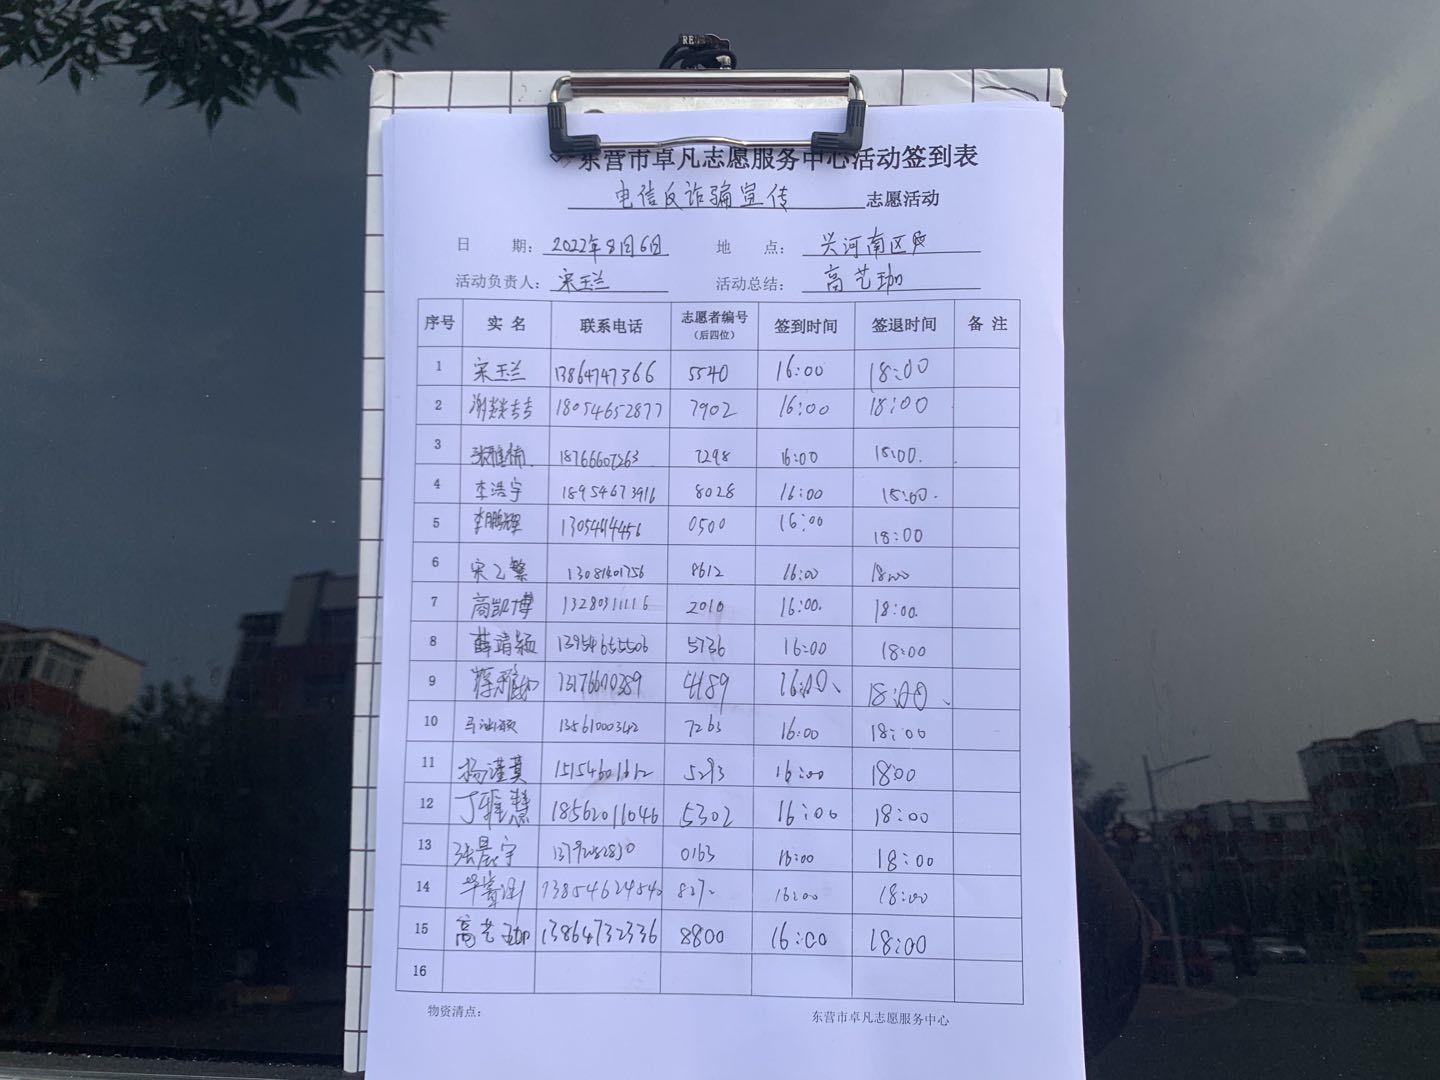 东营市卓凡志愿服务中心活动签到表
电信反诈骗宣传 志愿活动
日 期: 2022年8月6日 地 点: 兴河南区
活动负责人: 宋玉兰 活动总结: 高艺珈
序号 实 名 联系电话 志愿者编号 (后四位) 签到时间 签退时间 备 注
1 宋玉兰 13864747366 5540 16:00 18:00
2 18054652877 7902 16:00 18:00
3 18766607263 7298 16:00 18:00.
4 李浩宇 18954673916 8028 16:00 18:00.
5 李鹏辉 0500 16:00 18:00
6 宋乙繁 8612 16:00 18:00
7 高凯博 13280311116 2010 16:00. 18:00.
8 薛靖颖 13954655506 5736 16:00 18:00
9 4189 16:00、 18:00、
10 13561000342 7263 16:00 18:00
11 杨谨萁 15154601612 5293 16:00 18:00
12 丁雅慧 18562011046 5302 16:00 18:00
13 张晨宇 0163 16:00 18:00
14 13854624540 16:00 18:00
15 高艺珈 13864732336 8800 16:00 18:00
16
物资清点: 东营市卓凡志愿服务中心